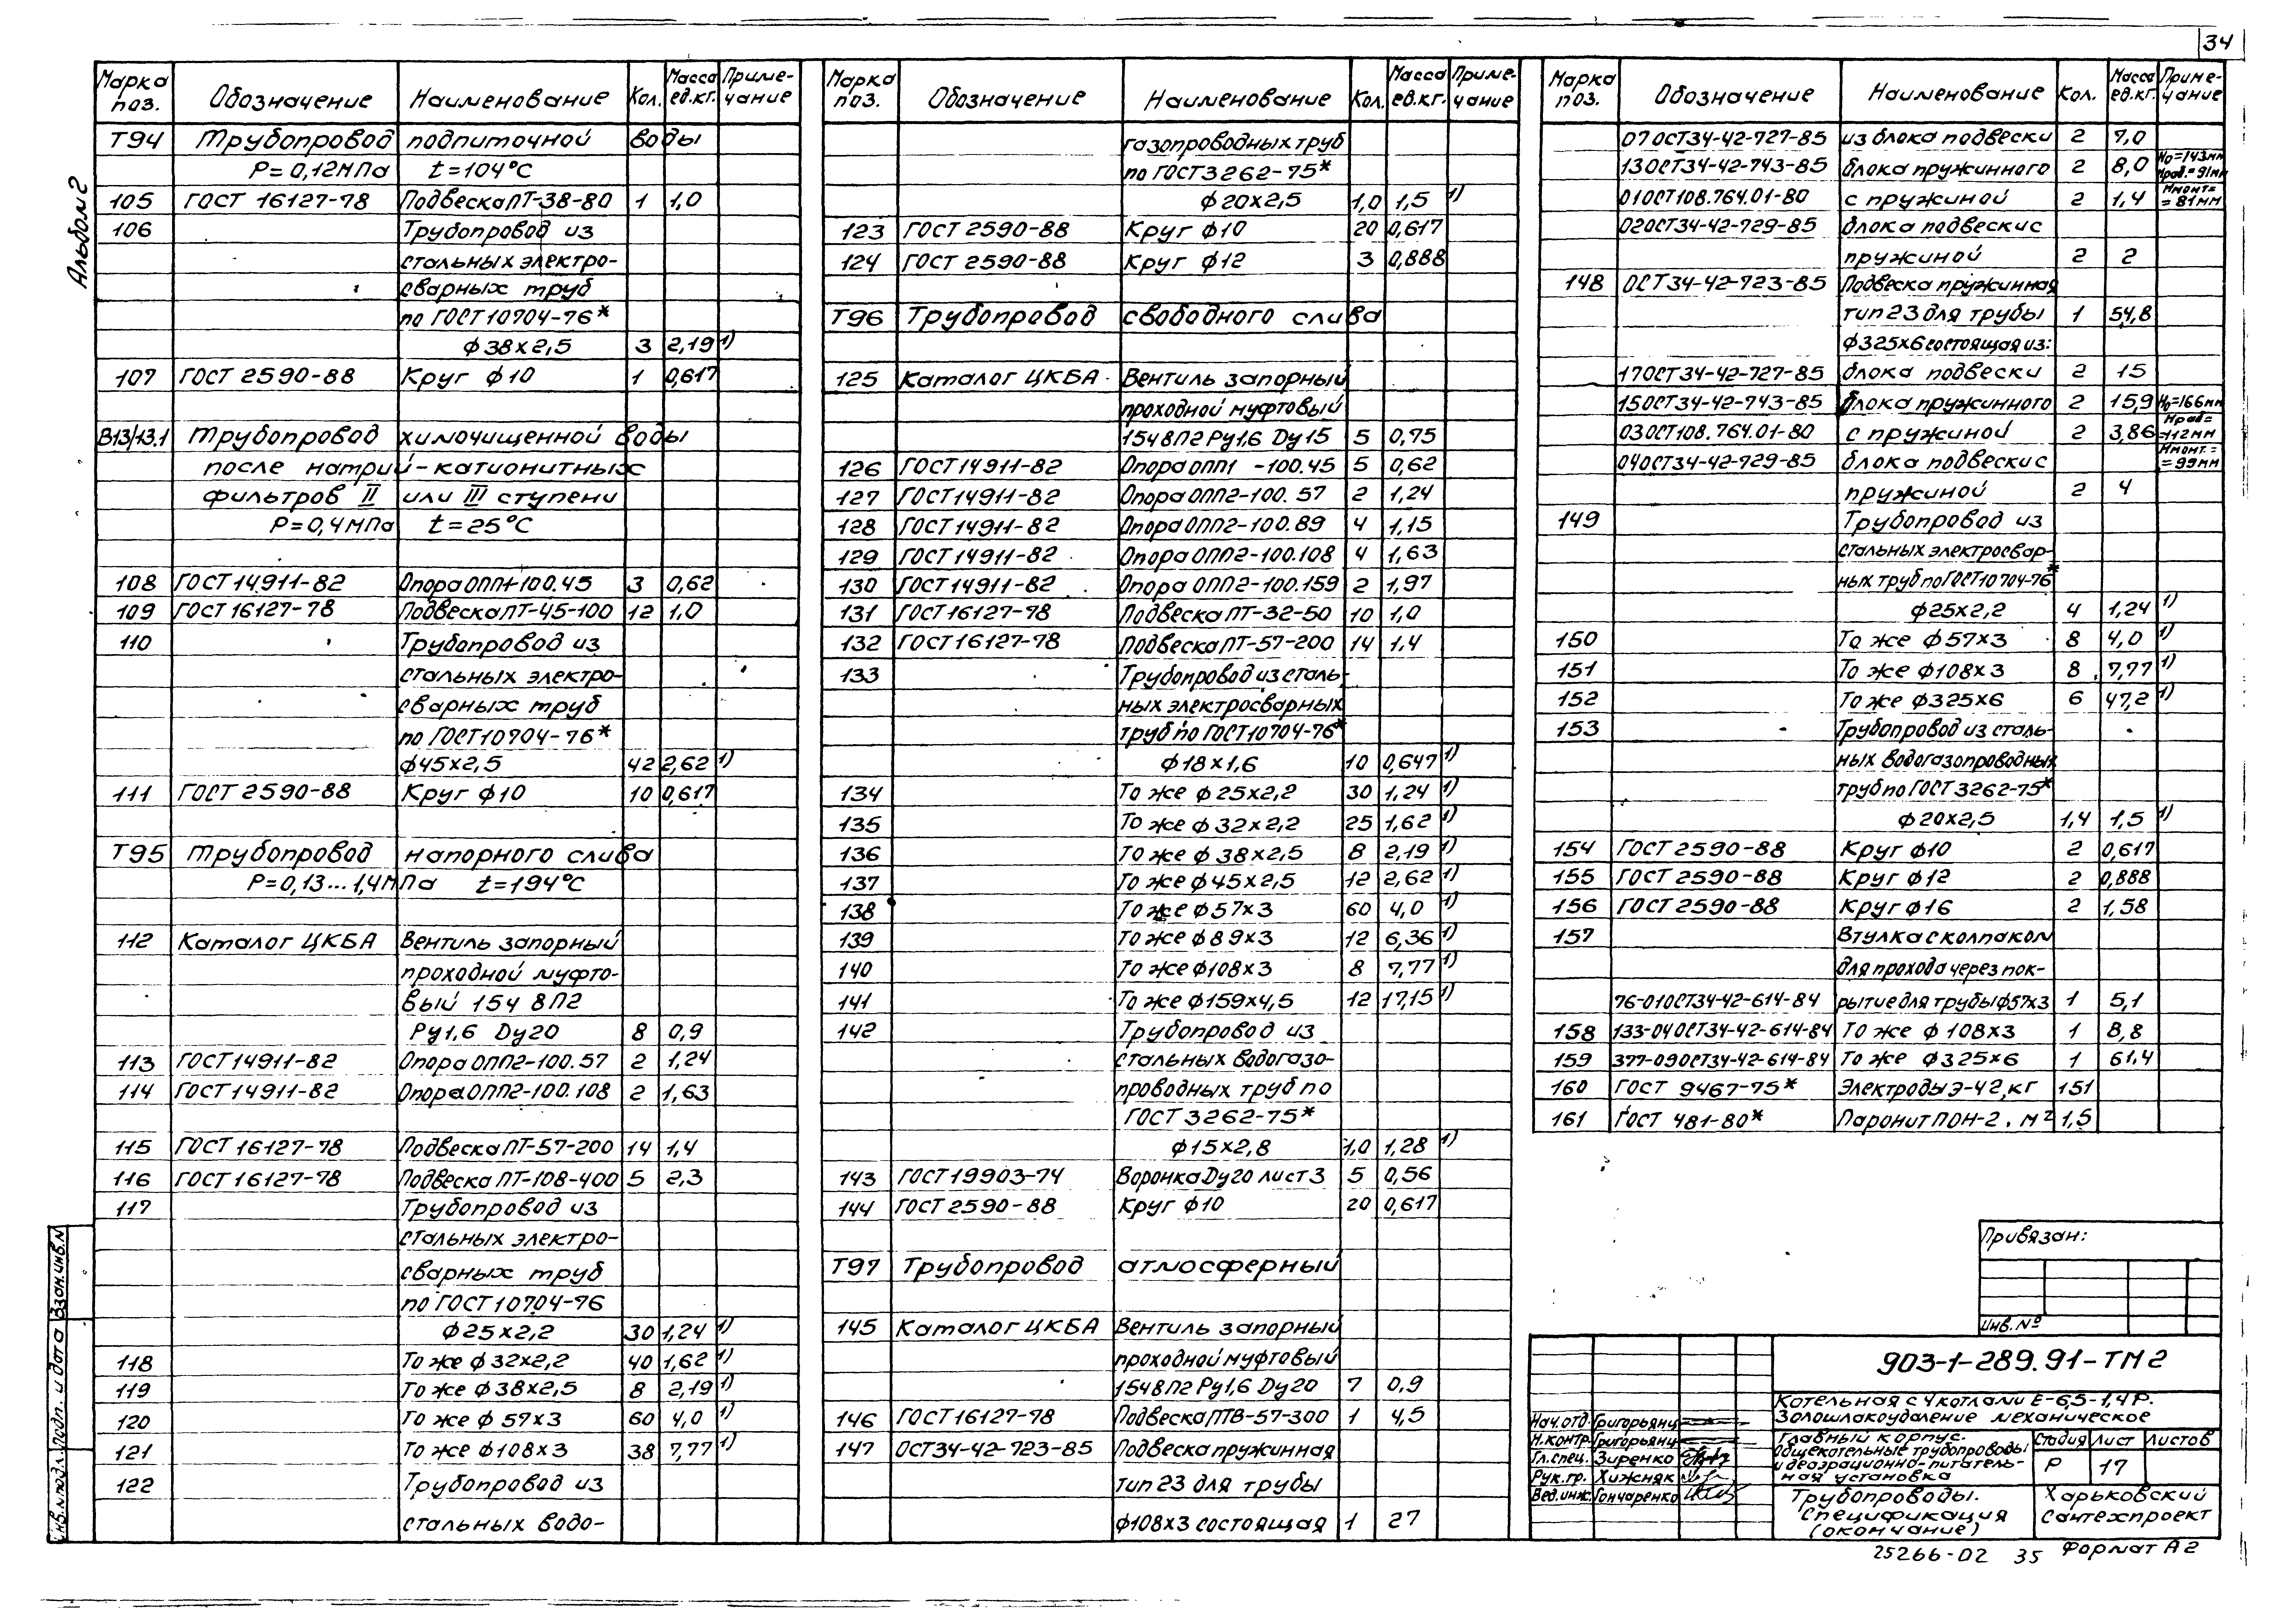 34
Альбом 2
Марка поз. Обозначение Наименование Кол. Масса ед.кг. Примечание
Т94 Трубопровод подпиточной воды
P=0,12МПа t=104°C
105 ГОСТ 16127-78 Подвеска ПТ-38-80 1 1,0
106 Трубопровод из
стальных электро-
сварных труб
по ГОСТ10704-76*
ф38х2,5 3 2,19 1)
107 ГОСТ 2590-88 Круг ф10 1 0,617
В13/13.1 Трубопровод химочищенной воды
после натрий-катионитных
фильтров II или III ступени
P=0,4МПа t=25°C
108 ГОСТ14911-82 Опора ОПП1-100.45 3 0,62
109 ГОСТ16127-78 Подвеска ПТ-45-100 12 1,0
110 Трубопровод из
стальных электро-
сварных труб
по ГОСТ10704-76*
ф45х2,5 42 2,62 1)
111 ГОСТ 2590-88 Круг ф10 10 0,617
Т95 Трубопровод напорного слива
P=0,13...1,4МПа t=194°C
112 Каталог ЦКБА Вентиль запорный
проходной муфто-
вый 15ч 8П2
Ру1,6 Dу20 8 0,9
113 ГОСТ14911-82 Опора ОПП2-100.57 2 1,24
114 ГОСТ14911-82 Опора ОПП2-100.108 2 1,63
115 ГОСТ16127-78 Подвеска ПТ-57-200 14 1,4
116 ГОСТ16127-78 Подвеска ПТ-108-400 5 2,3
117 Трубопровод из
стальных электро-
сварных труб
по ГОСТ10704-76
ф25х2,2 30 1,24 1)
118 То же ф32х2,2 40 1,62 1)
119 То же ф38х2,5 8 2,19 1)
120 То же ф57х3 60 4,0 1)
121 То же ф108х3 38 7,77 1)
122 Трубопровод из
стальных водо-
Марка поз. Обозначение Наименование Кол. Масса ед.кг. Примечание
газопроводных труб
по ГОСТ3262-75*
ф20х2,5 1,0 1,5 1)
123 ГОСТ 2590-88 Круг ф10 20 0,617
124 ГОСТ 2590-88 Круг ф12 3 0,888
Т96 Трубопровод свободного слива
125 Каталог ЦКБА Вентиль запорный
проходной муфтовый
15ч8П2 Ру1,6 Dу15 5 0,75
126 ГОСТ14911-82 Опора ОПП1 -100.45 5 0,62
127 ГОСТ14911-82 Опора ОПП2-100.57 2 1,24
128 ГОСТ14911-82 Опора ОПП2-100.89 4 1,15
129 ГОСТ14911-82 Опора ОПП2-100.108 4 1,63
130 ГОСТ14911-82 Опора ОПП2-100.159 2 1,97
131 ГОСТ16127-78 Подвеска ПТ-32-50 10 1,0
132 ГОСТ16127-78 Подвеска ПТ-57-200 14 1,4
133 Трубопровод из сталь-
ных электросварных
труб по ГОСТ10704-76*
ф18х1,6 10 0,647 1)
134 То же ф25х2,2 30 1,24 1)
135 То же ф32х2,2 25 1,62 1)
136 То же ф38х2,5 8 2,19 1)
137 То же ф45х2,5 12 2,62 1)
138 То же ф57х3 60 4,0 1)
139 То же ф89х3 12 6,36 1)
140 То же ф108х3 8 7,77 1)
141 То же ф159х4,5 12 17,15 1)
142 Трубопровод из
стальных водогазо-
проводных труб по
ГОСТ 3262-75*
ф15х2,8 1,0 1,28 1)
143 ГОСТ19903-74 Воронка Dу20 лист 3 5 0,56
144 ГОСТ 2590-88 Круг ф10 20 0,617
Т97 Трубопровод атмосферный
145 Каталог ЦКБА Вентиль запорный
проходной муфтовый
15ч8П2 Ру1,6 Dу20 7 0,9
146 ГОСТ16127-78 Подвеска ПТВ-57-300 1 4,5
147 ОСТ34-42-723-85 Подвеска пружинная
тип 23 для трубы
ф108х3 состоящая 1 27
Марка поз. Обозначение Наименование Кол. Масса ед.кг. Примечание
07ОСТ34-42-727-85 из блока подвески 2 7,0
13ОСТ34-42-743-85 блока пружинного 2 8,0 Н0=143мм Нраб.=91мм
01ОСТ108.764.01-80 с пружиной 2 1,4 Нмонт= =81мм
02ОСТ34-42-729-85 блока подвески с
пружиной 2 2
148 ОСТ34-42-723-85 Подвеска пружинная
тип 23 для трубы 1 54,8
ф325х6 состоящая из:
17ОСТ34-42-727-85 блока подвески 2 15
15ОСТ34-42-743-85 блока пружинного 2 15,9 Н0=166мм
03ОСТ108.764.01-80 с пружиной 2 3,86 Нраб= =112мм
04ОСТ34-42-729-85 блока подвески с Нмонт.= =99мм
пружиной 2 4
149 Трубопровод из
стальных электросвар-
ных труб по ГОСТ10704-76*
ф25х2,2 4 1,24 1)
150 То же ф57х3 8 4,0 1)
151 То же ф108х3 8 7,77 1)
152 То же ф325х6 6 47,2 1)
153 Трубопровод из сталь-
ных водогазопроводных
труб по ГОСТ 3262-75*
ф20х2,5 1,4 1,5 1)
154 ГОСТ 2590-88 Круг ф10 2 0,617
155 ГОСТ 2590-88 Круг ф12 2 0,888
156 ГОСТ 2590-88 Круг ф16 2 1,58
157 Втулка с колпаком
для прохода через пок-
76-01ОСТ34-42-614-84 рытие для трубы ф57х3 1 5,1
158 133-04ОСТ34-42-614-84 То же ф108х3 1 8,8
159 377-09ОСТ34-42-614-84 То же ф325х6 1 61,4
160 ГОСТ 9467-75* Электроды Э-42, кг 151
161 ГОСТ 481-80* Паронит ПОН-2, м2 1,5
Привязан:
Инв. №
903-1-289.91-ТМ2
Котельная с 4 котлами Е-6,5-1,4Р.
Золошлакоудаление механическое
Главный корпус.
Общекотельные трубопроводы
и деаэрационно-питатель-
ная установка
Стадия Лист Листов
Р 17
Трубопроводы.
Спецификация
(окончание)
Харьковский
Сантехпроект
Нач.отд. Григорьянц
Н.контр. Григорьянц
Гл.спец. Зиренко
Рук.гр. Хижняк
Вед.инж. Гончаренко
Инв.№подл. Подп. и дата Взам.инв.№
25266-02 35 Формат А2